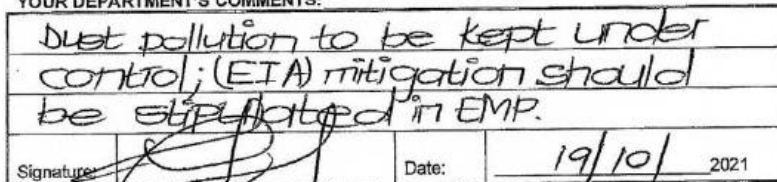 YOUR DEPARTMENT'S COMMENTS:
Dust pollution to be kept under
control; (EIA) mitigation should
be stipulated in EMP.
Signature: Date: 19/10/ 2021